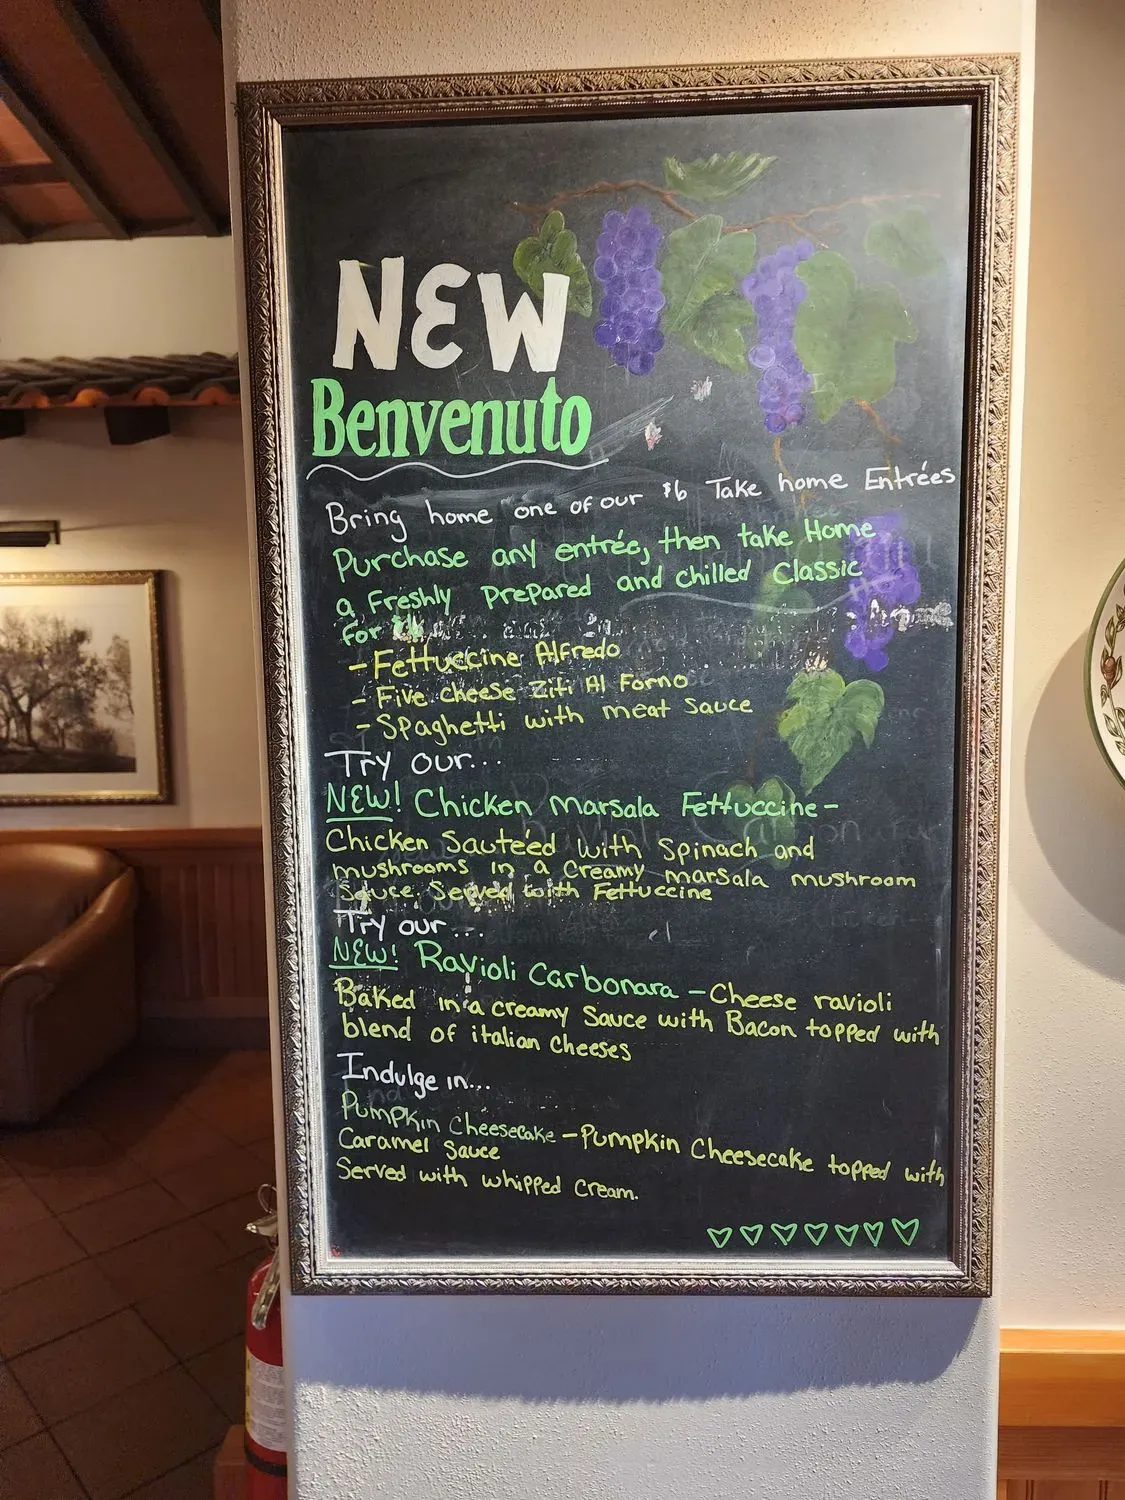 NEW
Benvenuto
Bring home one of our $6 Take home Entrées
Purchase any entrée, then take Home
a Freshly Prepared and chilled Classic
for $6
- Fettuccine Alfredo
- Five cheese Ziti Al Forno
- Spaghetti with meat Sauce
Try our...
NEW! Chicken Marsala Fettuccine -
Chicken Sauteéd with Spinach and
mushrooms in a Creamy marsala mushroom
Sauce. Served with Fettuccine
Try our...
NEW! Ravioli Carbonara - Cheese ravioli
Baked in a creamy Sauce with Bacon topped with
blend of italian Cheeses
Indulge in...
Pumpkin Cheesecake - Pumpkin Cheesecake topped with
Caramel Sauce
Served with whipped Cream.